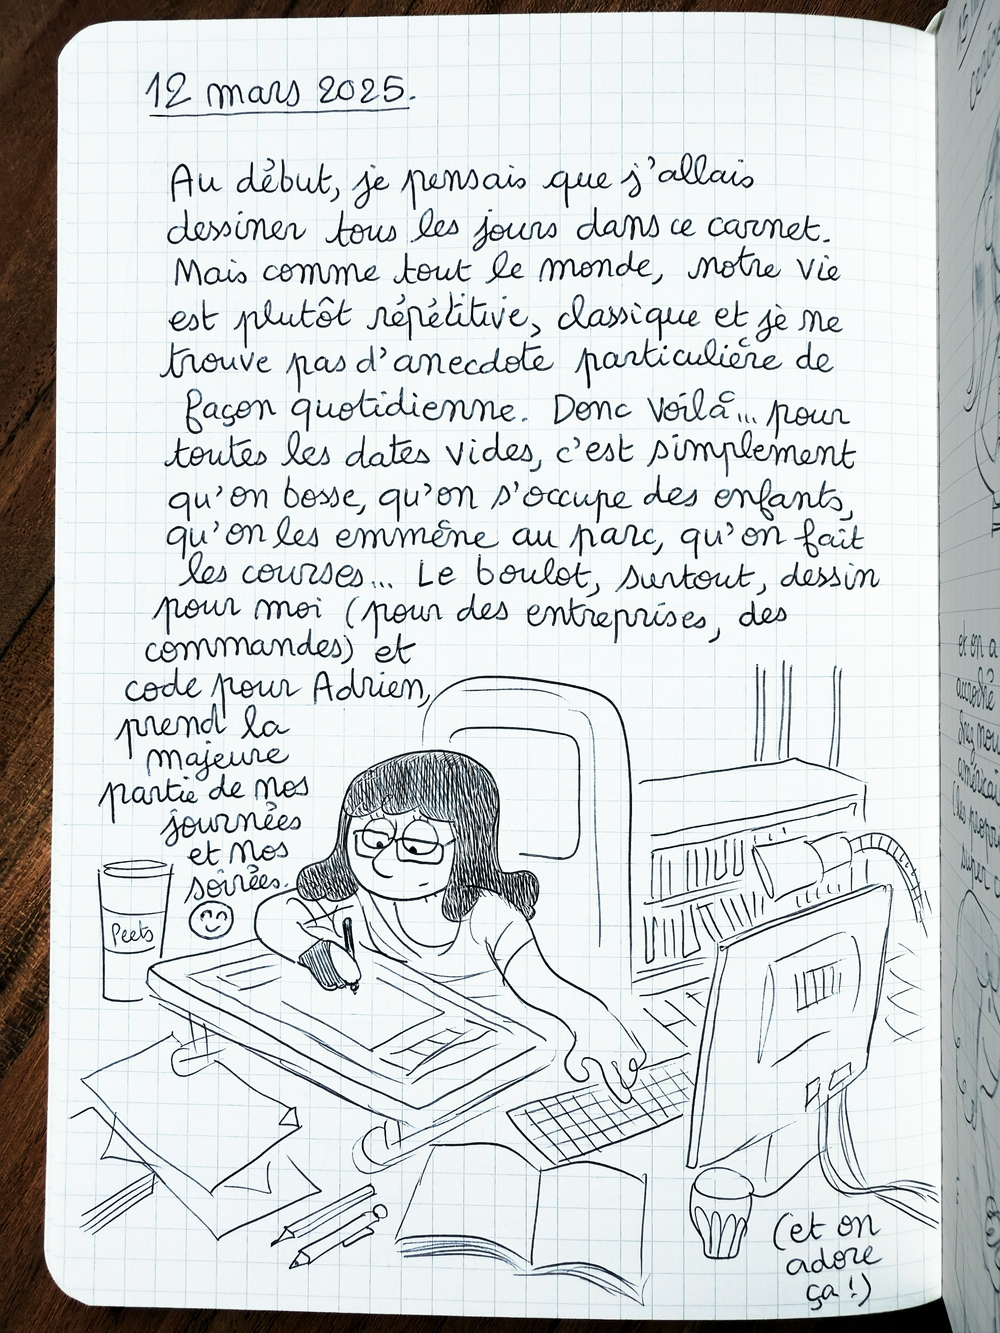 12 mars 2025.
Au début, je pensais que j'allais
dessiner tous les jours dans ce carnet.
Mais comme tout le monde, notre vie
est plutôt répétitive, classique et je ne
trouve pas d'anecdote particulière de
façon quotidienne. Donc voilà... pour
toutes les dates vides, c'est simplement
qu'on bosse, qu'on s'occupe des enfants,
qu'on les emmène au parc, qu'on fait
les courses... Le boulot, surtout, dessin
pour moi (pour des entreprises, des
commandes) et
code pour Adrien,
prend la
majeure
partie de nos
journées
et nos
soirées.
Peets
(et on
adore
ça !)
et on a